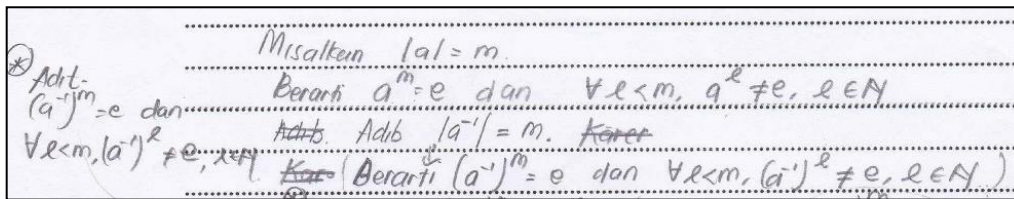 Misalkan |a| = m.
Berarti a^m = e dan ∀ℓ<m, a^ℓ ≠ e, ℓ ∈ N
Adib |a^-1| = m. Karer
(Berarti (a^-1)^m = e dan ∀ℓ<m, (a^-1)^ℓ ≠ e, ℓ ∈ N)
* Adit-
(a^-1)^m = e dan
∀ℓ<m, (a^-1)^ℓ ≠ e, ℓ∈N